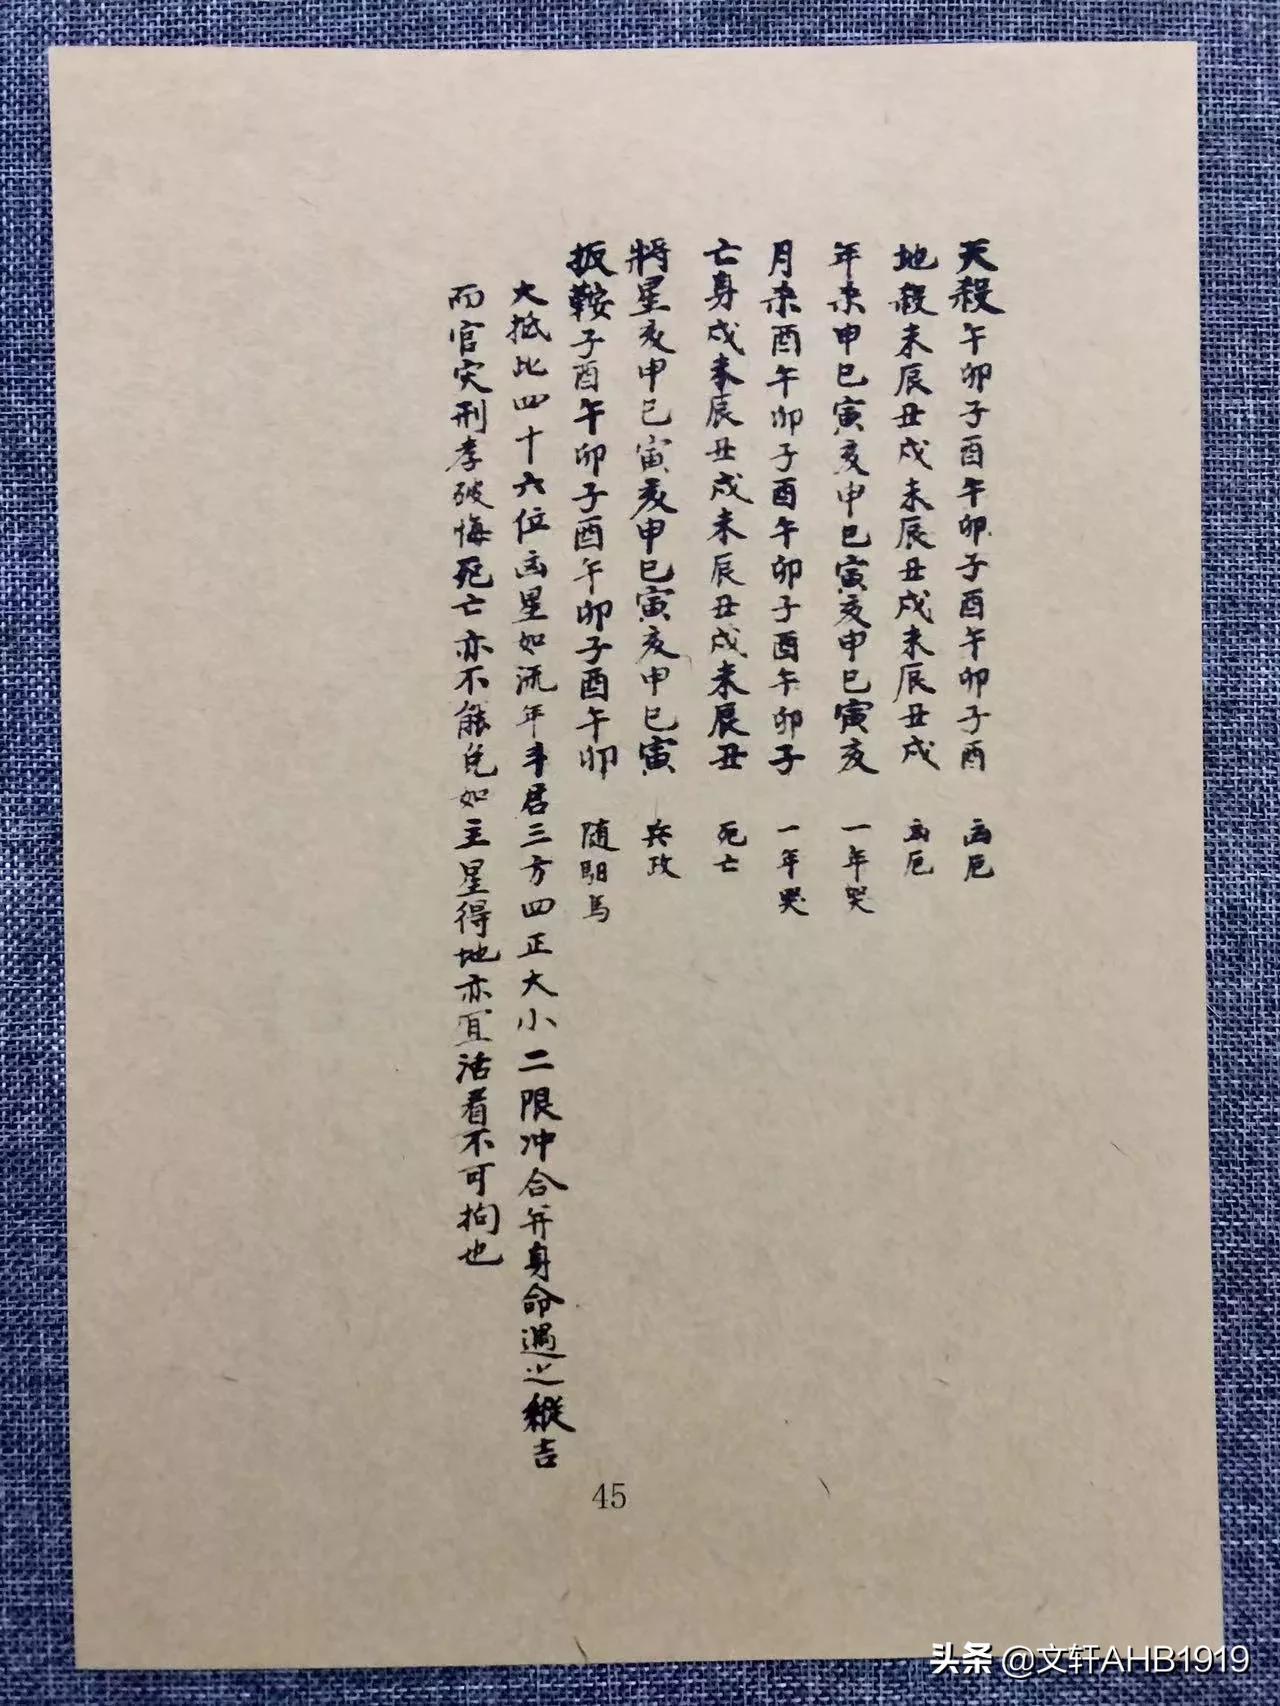 天殺午卯子酉午卯子酉午卯子酉 凶厄
地殺未辰丑戌未辰丑戌未辰丑戌 凶厄
年杀申巳寅亥申巳寅亥申巳寅亥 一年哭
月杀酉午卯子酉午卯子酉午卯子 一年哭
亡身戌未辰丑戌未辰丑戌未辰丑 死亡
將星亥申巳寅亥申巳寅亥申巳寅 兵政
扳鞍子酉午卯子酉午卯子酉午卯 随馹馬
大抵比四十六位凶星如流年斗君三方四正大小二限冲合并身命遇之縱吉
而官灾刑孝破悔死亡亦不能免如主星得地亦宜活看不可拘也
45
头条 @文轩AHB1919